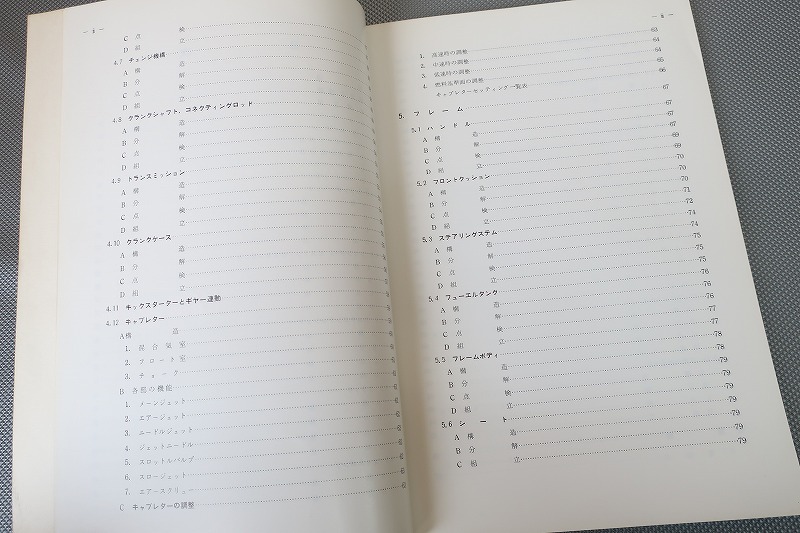 — ii —
C 点 検
D 組 立
4.7 チェンジ機構
A 構 造
B 分 解
C 点 検
D 組 立
4.8 クランクシャフト、コネクティングロッド
A 構 造
B 分 解
C 点 検
D 組 立
4.9 トランスミッション
A 構 造
B 分 解
C 点 検
D 組 立
4.10 クランクケース
A 構 造
B 分 解
C 点 検
D 組 立
4.11 キックスターターとギヤー連動
4.12 キャブレター
A 構 造
1. 混合気室
2. フロート室
3. チョーク
B 各部の機能
1. メーンジェット
2. エアージェット
3. ニードルジェット
4. ジェットニードル
5. スロットルバルブ
6. スロージェット
7. エアースクリュー
C キャブレターの調整
1. 高速時の調整 63
2. 中速時の調整 64
3. 低速時の調整 64
4. 燃料油準面の調整 65
キャブレターセッティング一覧表 66
5. フレーム 67
5.1 ハンドル 67
A 構 造 67
B 分 解 67
C 点 検 69
D 組 立 69
5.2 フロントクッション 70
A 構 造 70
B 分 解 70
C 点 検 71
D 組 立 72
5.3 ステアリングステム 74
A 構 造 74
B 分 解 75
C 点 検 75
D 組 立 75
5.4 フューエルタンク 76
A 構 造 76
B 分 解 76
C 点 検 77
D 組 立 77
5.5 フレームボディ 78
A 構 造 78
B 分 解 79
C 点 検 79
D 組 立 79
5.6 シート 79
A 構 造 79
B 分 解 79
C 組 立 79